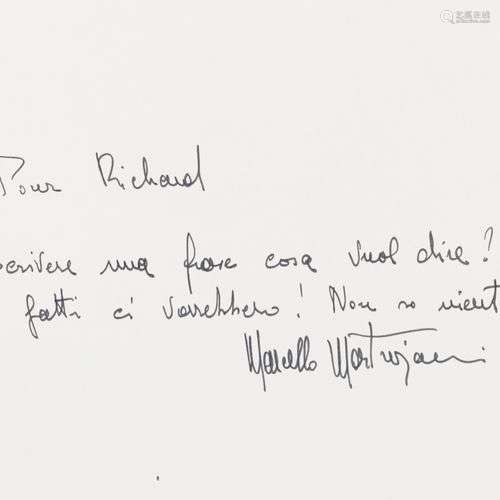 艺狐在线
Pour Richard
scrivere una frase cosa vuol dire?
fatti ci vorrebbero! Non so nient
Marcello Mastrojanni